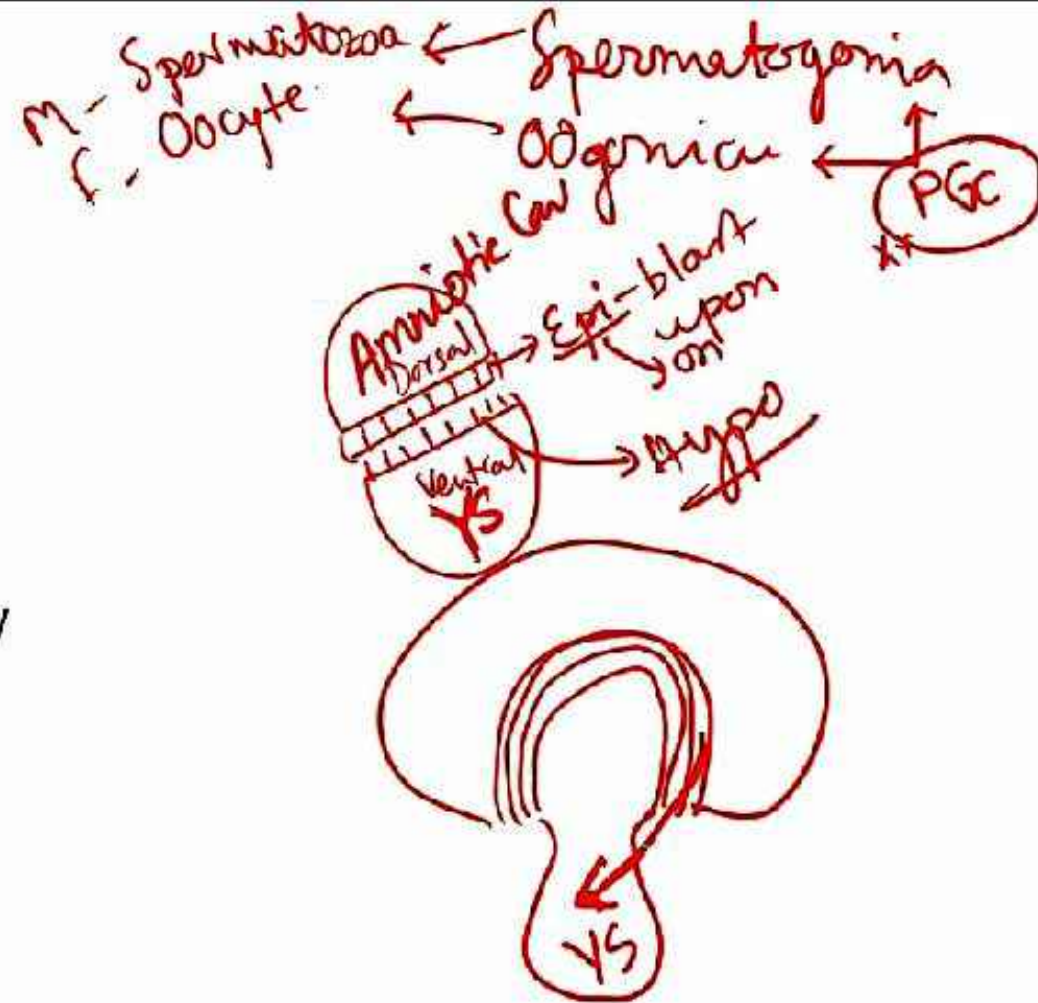 M - Spermatozoa ← Spermatogonia
F - Oocyte ← OOgonia ← PGC
Amniotic Cav
Dorsal
Epi-blast
upon
on
Hypo
Ventral
YS
YS